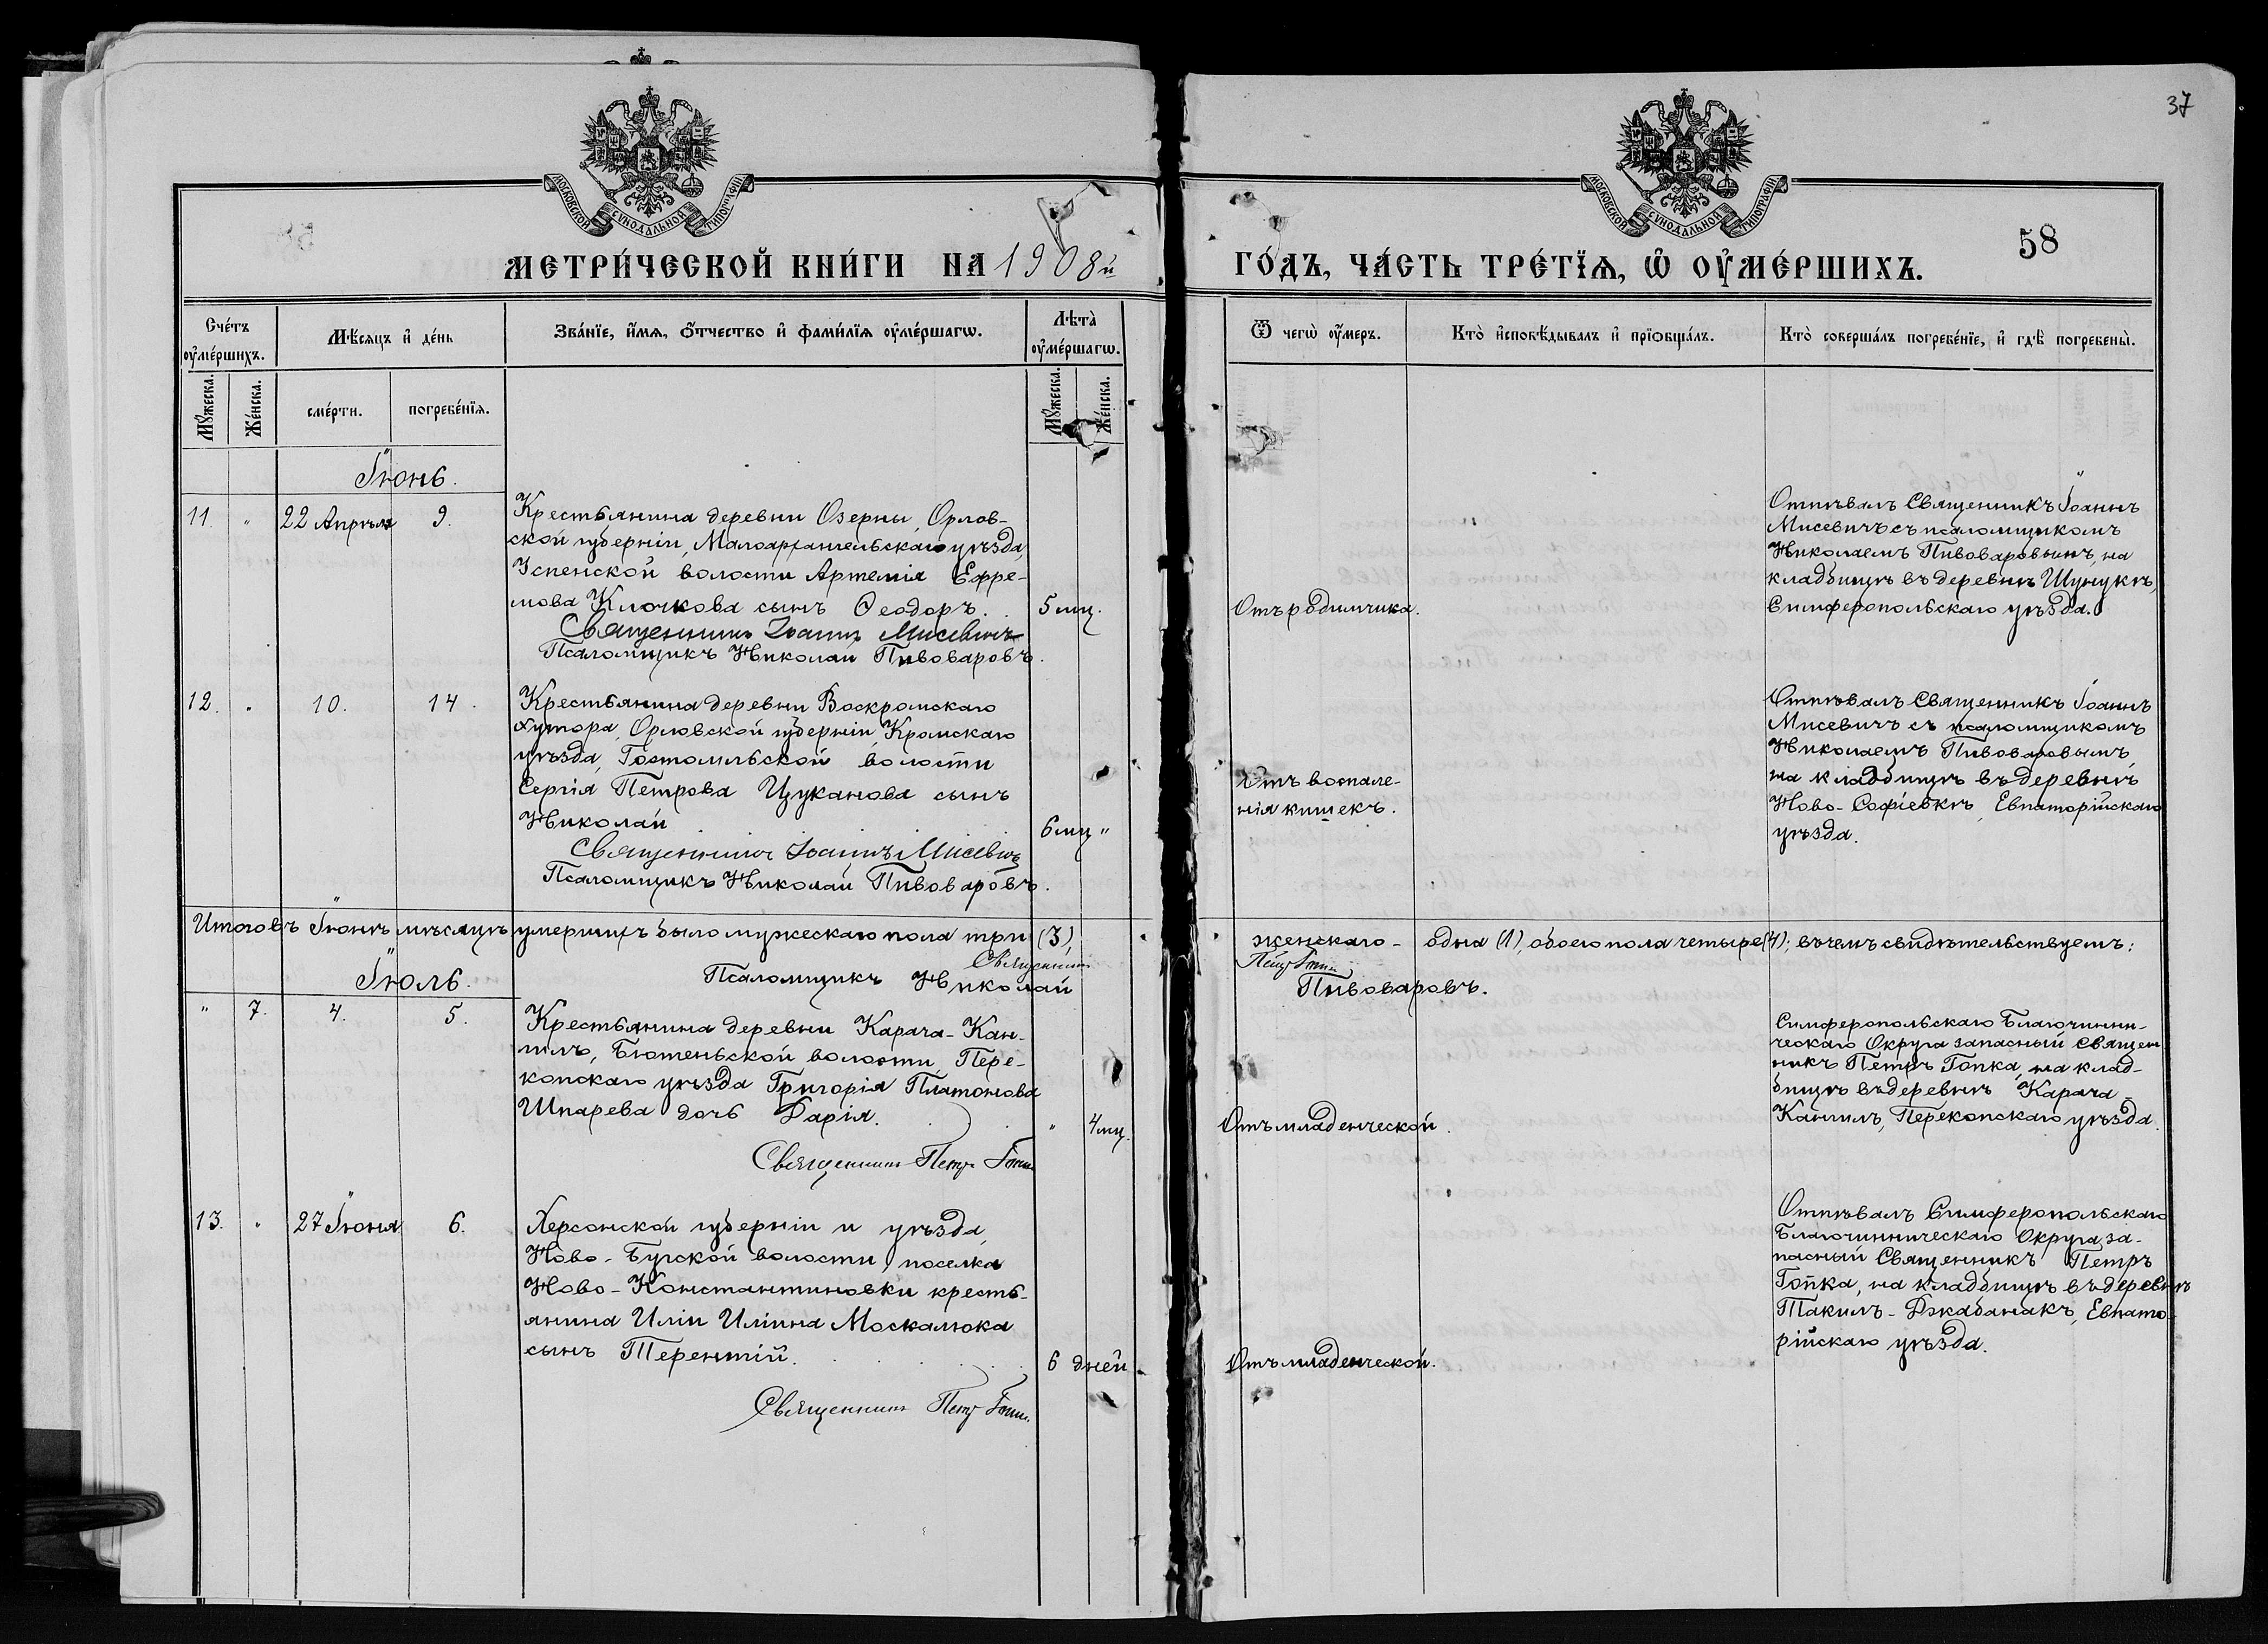 37
МОСКОВСКОЙ СѴНОДАЛЬНОЙ ТИПОГРАФІИ
МОСКОВСКОЙ СѴНОДАЛЬНОЙ ТИПОГРАФІИ
58
МЕТРИ́ЧЕСКОЙ КНИ́ГИ НА 1908й ГО́ДЪ, ЧА́СТЬ ТРЕ́ТЇѦ, Ѡ҆ ОУ҆МЕ́РШИХЪ.
Сче́тъ оу҆ме́ршихъ.
Мѣ́сяцъ и҆ де́нь
Зва́нїе, и҆́мѧ, ѻ҆́тчество и҆ фами́лїѧ оу҆ме́ршагѡ.
Лѣта̀ оу҆ме́ршагѡ.
Ѿ чегѡ̀ оу҆́меръ.
Кто̀ и҆сповѣ́дывалъ и҆ прїѡбща́лъ.
Кто̀ соверша́лъ погребе́нїе, и҆ гдѣ̀ погребены̀.
Мꙋ́жеска.
Же́нска.
сме́рти.
погребе́нїѧ.
Мꙋ́жеска.
Же́нска.
Іюнь.
11. " 22 Апрѣля 9.
Крестьянина деревни Озерны, Орлов-
ской губерніи, Малоархангельскаго уѣзда,
Успенской волости Артемія Ефре-
мова Клочкова сынъ Ѳеодоръ.
5 мц.
Священникъ Іоаннъ Мисевичъ
Псаломщикъ Николай Пивоваровъ.
Отъ родимчика.
Отпѣвалъ Священникъ Іоаннъ
Мисевичъ съ псаломщикомъ
Николаемъ Пивоваровымъ, на
кладбищѣ въ деревнѣ Шунукъ,
Симферопольскаго уѣзда.
12. " 10. 14.
Крестьянина деревни Воскромскаго
хутора, Орловской губерніи, Кромскаго
уѣзда, Гостомльской волости
Сергія Петрова Цуканова сынъ
Николай
6 мц "
Священникъ Іоаннъ Мисевичъ
Псаломщикъ Николай Пивоваровъ.
Отъ воспале-
нія кишекъ.
Отпѣвалъ Священникъ Іоаннъ
Мисевичъ съ псаломщикомъ
Николаемъ Пивоваровымъ
на кладбищѣ въ деревнѣ
Ново-Софіевкѣ, Евпаторійскаго
уѣзда.
Итого въ Іюнѣ мѣсяцѣ умершихъ было мужескаго пола три (3), женскаго - одна (1), обоего пола четыре (4); въ чемъ свидѣтельствуемъ:
Священникъ Петръ Гопка
Псаломщикъ Николай Пивоваровъ.
Іюль.
" 7. 4. 5.
Крестьянина деревни Карача-Кан-
гилъ, Бютеньской волости, Пере-
копскаго уѣзда Григорія Платонова
Шпарева дочь Дарія.
" 4 мц.
Священникъ Петръ Гопка
Отъ младенческой.
Симферопольскаго Благочинни-
ческаго Округа запасный Священ
никъ Петръ Гопка, на клад-
бищѣ въ деревнѣ Карача-
Кангилъ, Перекопскаго уѣзда.
13. " 27 Іюня 6.
Херсонской губерніи и уѣзда,
Ново-Бугской волости, поселка
Ново-Константиновки кресть-
янина Иліи Иліина Москалюка
сынъ Терентій.
6 дней.
Священникъ Петръ Гопка
Отъ младенческой.
Отпѣвалъ Симферопольскаго
Благочинническаго Округа, за-
пасный Священникъ Петръ
Гопка, на кладбищѣ въ деревнѣ
Такилъ-Джабанакъ, Евпато-
рійскаго уѣзда.